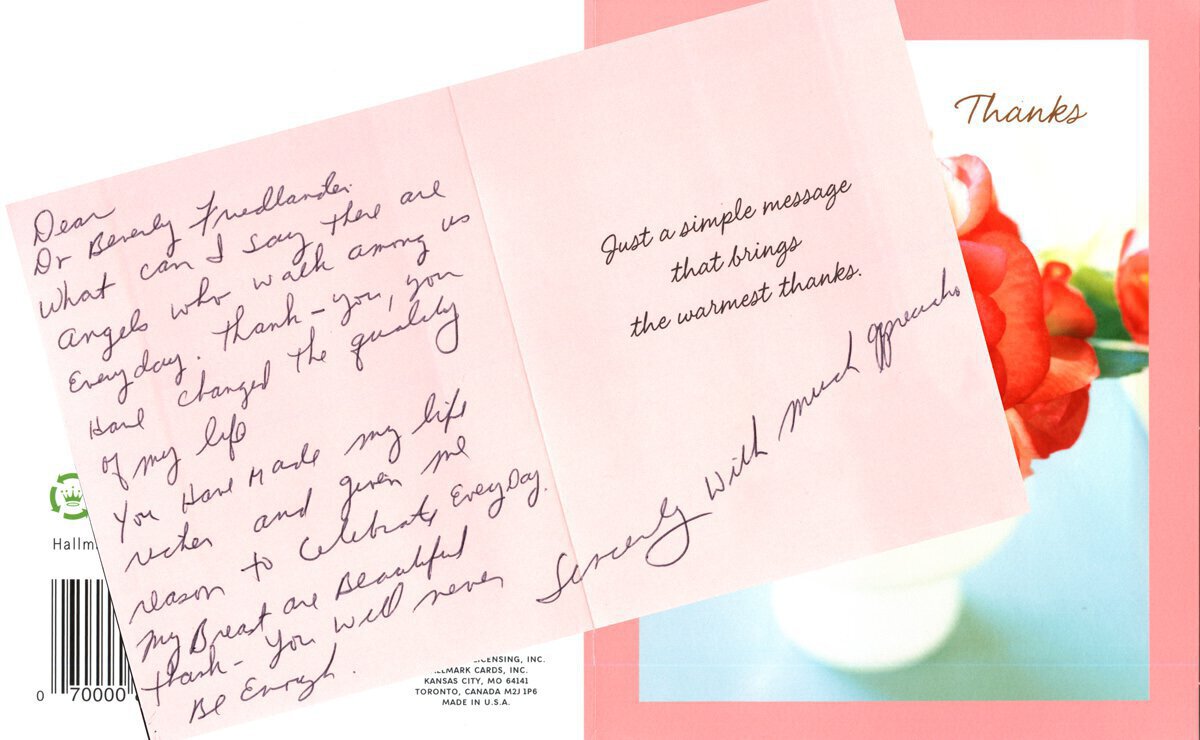 Dear
Dr Beverly Friedlander
What can I say There are
angels who walk among us
Everyday. Thank-You, you
Have changed The quality
of my life
You Have Made my life
richer and given me
reason to Celebrate EveryDay.
My Breast are Beautiful
Thank-You Will never
Be Enough.
Just a simple message
that brings
the warmest thanks.
Sincerely With much
Thanks
Hallm
0 70000
LICENSING, INC.
LLMARK CARDS, INC.
KANSAS CITY, MO 64141
TORONTO, CANADA M2J 1P6
MADE IN U.S.A.